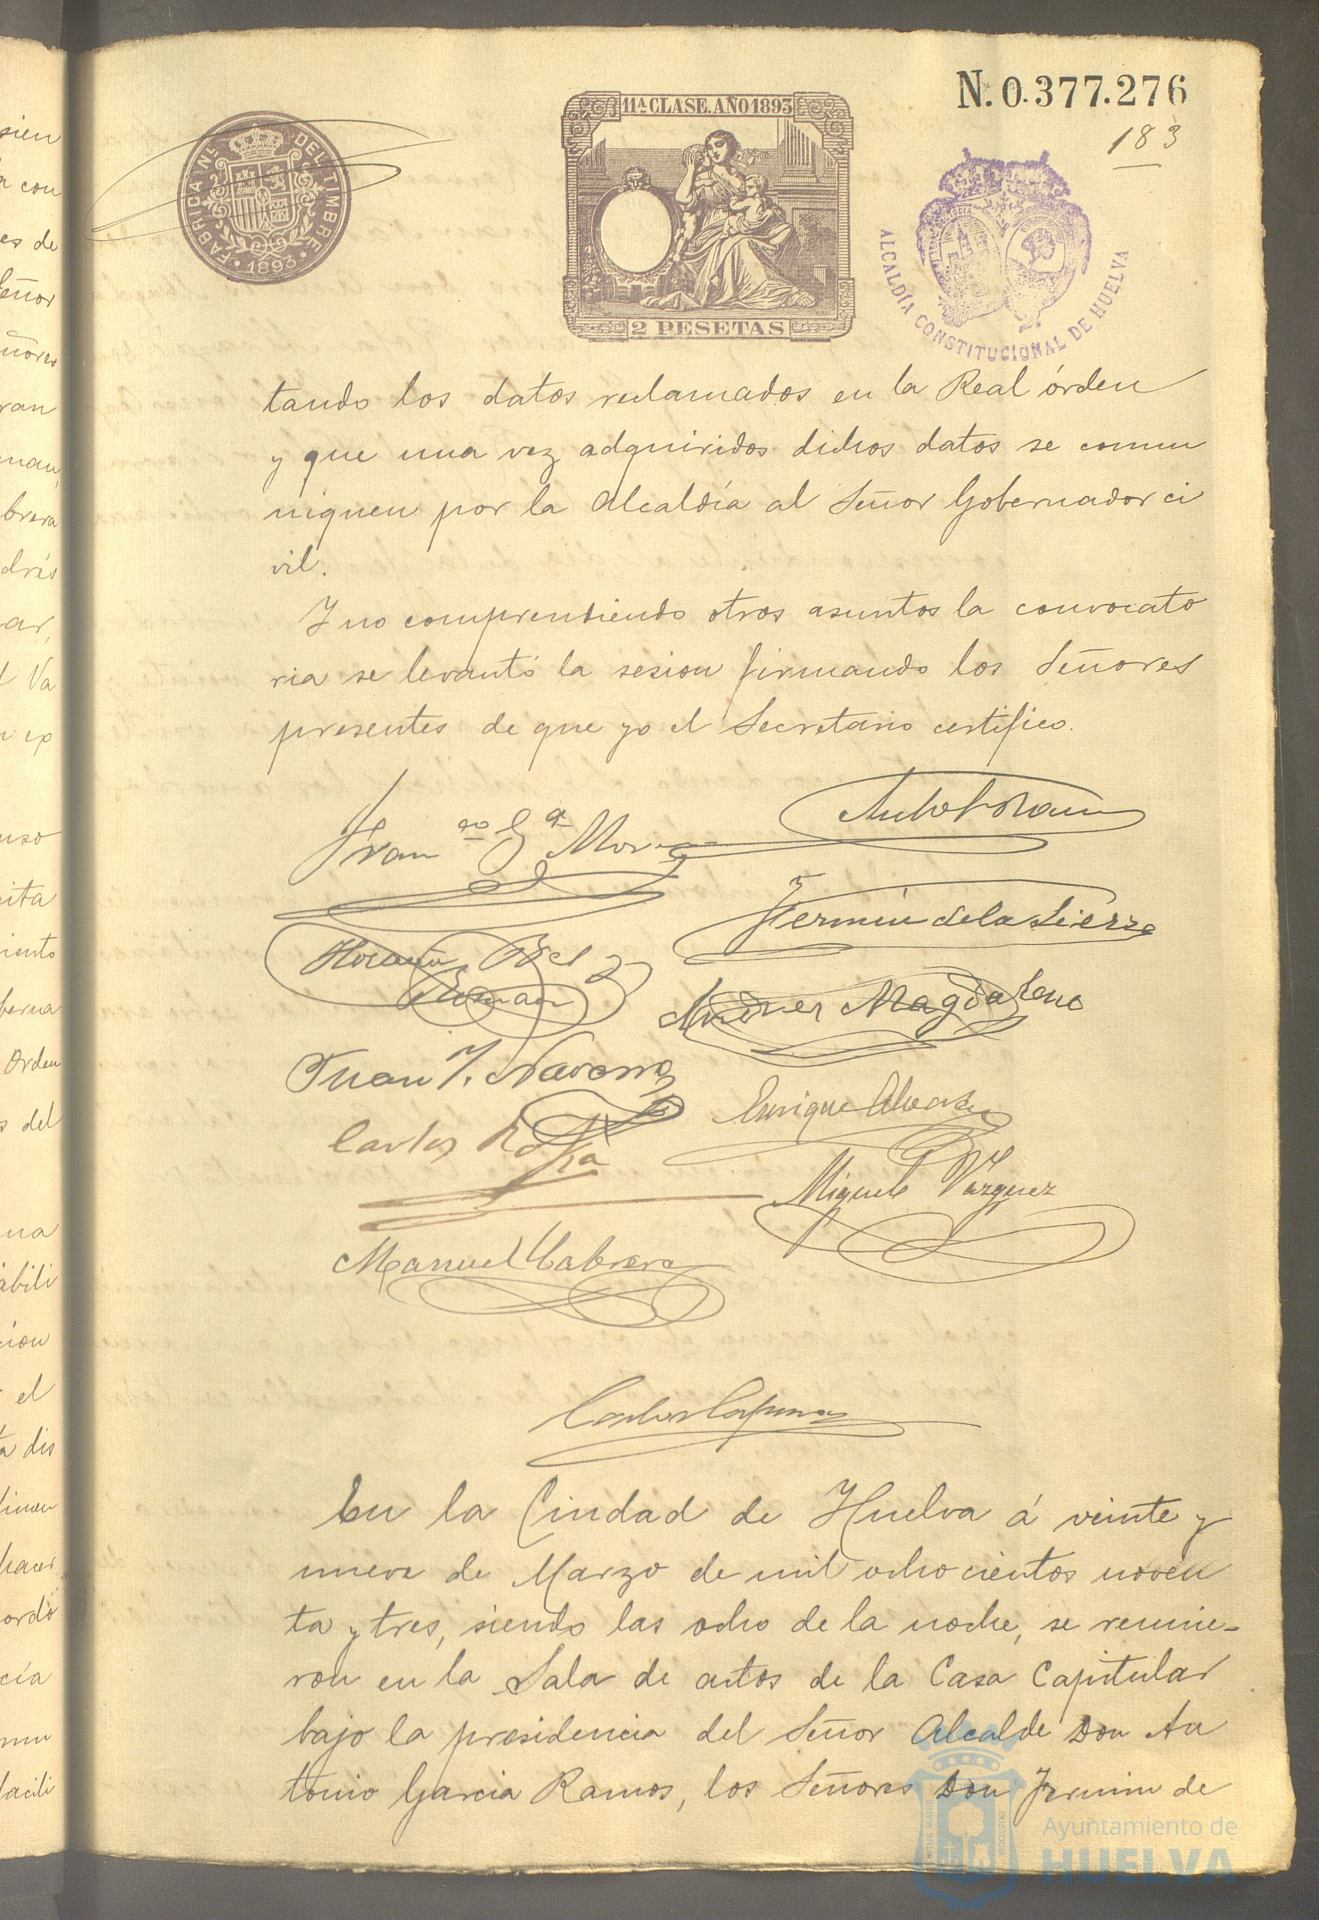 N. 0.377.276
183
11ª CLASE. AÑO 1893
FÁBRICA NL. DEL TIMBRE
1893
2 PESETAS
ALCALDÍA CONSTITUCIONAL DE HUELVA
tando los datos reclamados en la Real órden
y que una vez adquiridos dichos datos se comu
niquen por la Alcaldía al Señor Gobernador ci
vil.
Y no comprendiendo otros asuntos la convocato
ria se levantó la sesion firmando los Señores
presentes de que yo el Secretario certifico.
Franco Ga Mor
Fermin de la Sierra
Andres Magdaleno
Juan J. Navarro
Enrique
Carlos
Miguel Vazquez
Manuel Cabrera
Carlos
En la Ciudad de Huelva á veinte y
nueve de Marzo de mil ochocientos noven
ta y tres, siendo las ocho de la noche, se reunie-
ron en la Sala de actos de la Casa Capitular
bajo la presidencia del Señor Alcalde Don An
tonio Garcia Ramos, los Señores Don Fermin de
Ayuntamiento de
HUELVA